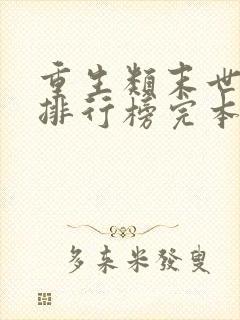 重生類末世
排行榜完本
多来米發叟